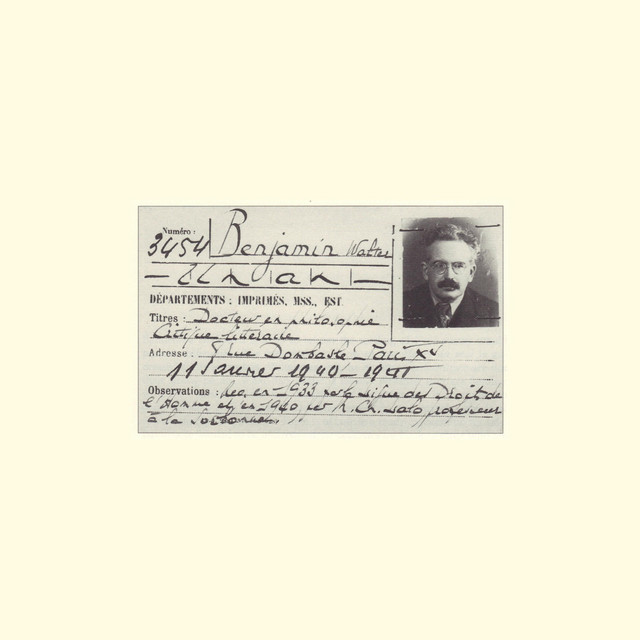 Numéro :
3454 Benjamin Walter
DÉPARTEMENTS : IMPRIMÉS, MSS., EST.
Titres : Docteur en philosophie
Critique littéraire
Adresse : rue Dombasle Paris XV
11 Janvier 1940 – 1941
Observations : en 1933 Droits de
l'Homme en 1940 par professeur
à la Sorbonne.